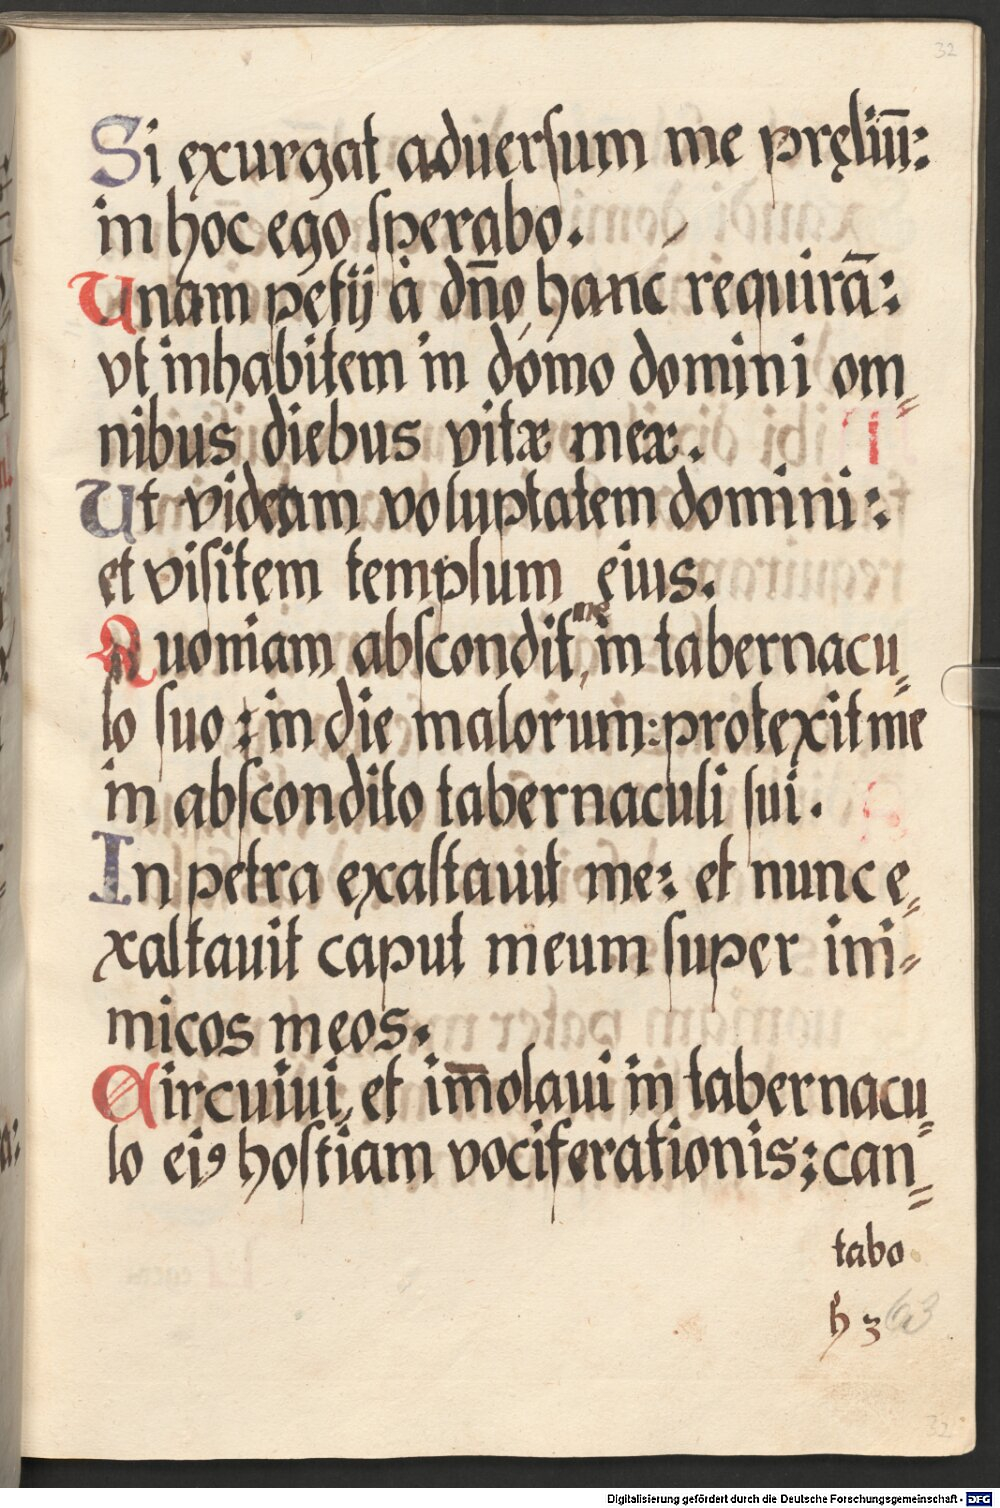 32
Si exurgat aduerſum me pręliū:
in hoc ego ſperabo.
Unam petij à dn̄o, hanc requirā:
vt inhabitem in domo domini om=
nibus diebus vitæ meæ.
Ut videam voluptatem domini:
et viſitem templum eius.
me
Quoniam abſcondit, in tabernacu=
lo ſuo: in die malorum: protexit me
in abſcondito tabernaculi ſui.
In petra exaltauit me: et nunc e=
xaltauit caput meum ſuper ini=
micos meos.
Circuiui, et im̄olaui in tabernacu=
lo eiꝰ hoſtiam vociferationis; can=
tabo
h 3 63
32
Digitalisierung gefördert durch die Deutsche Forschungsgemeinschaft - DFG